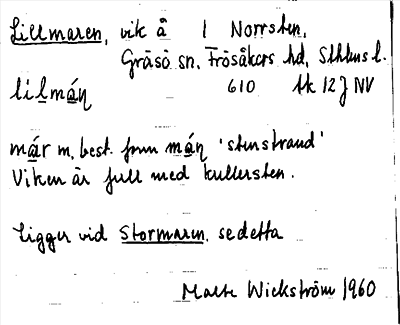 Lillmaren, vik å 1 Norrsten,
Gräsö sn, Frösåkers hd, Sthlms l.
lilmán 610 tk 12J NV
már m, best. form mán 'stenstrand'
Viken är full med kullersten.
Ligger vid Stormaren. se detta
Malte Wickström 1960